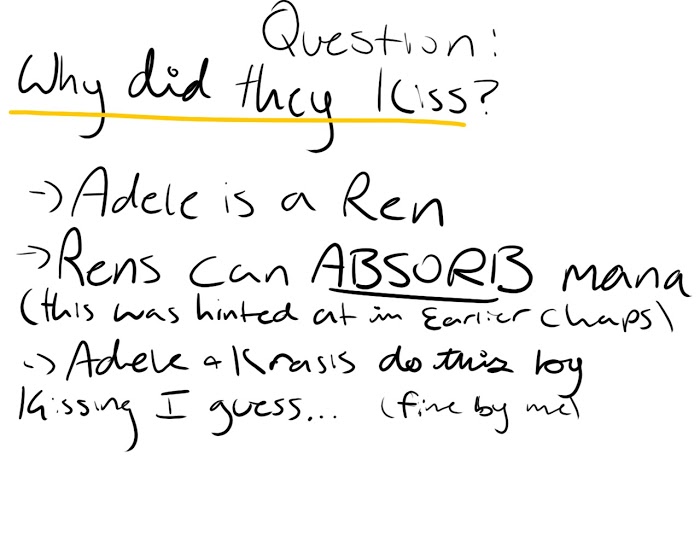 Question:
Why did they Kiss?
-> Adele is a Ren
-> Rens can ABSORB mana
(this was hinted at in Earlier chaps)
-> Adele + Krasis do this by
Kissing I guess... (fine by me)